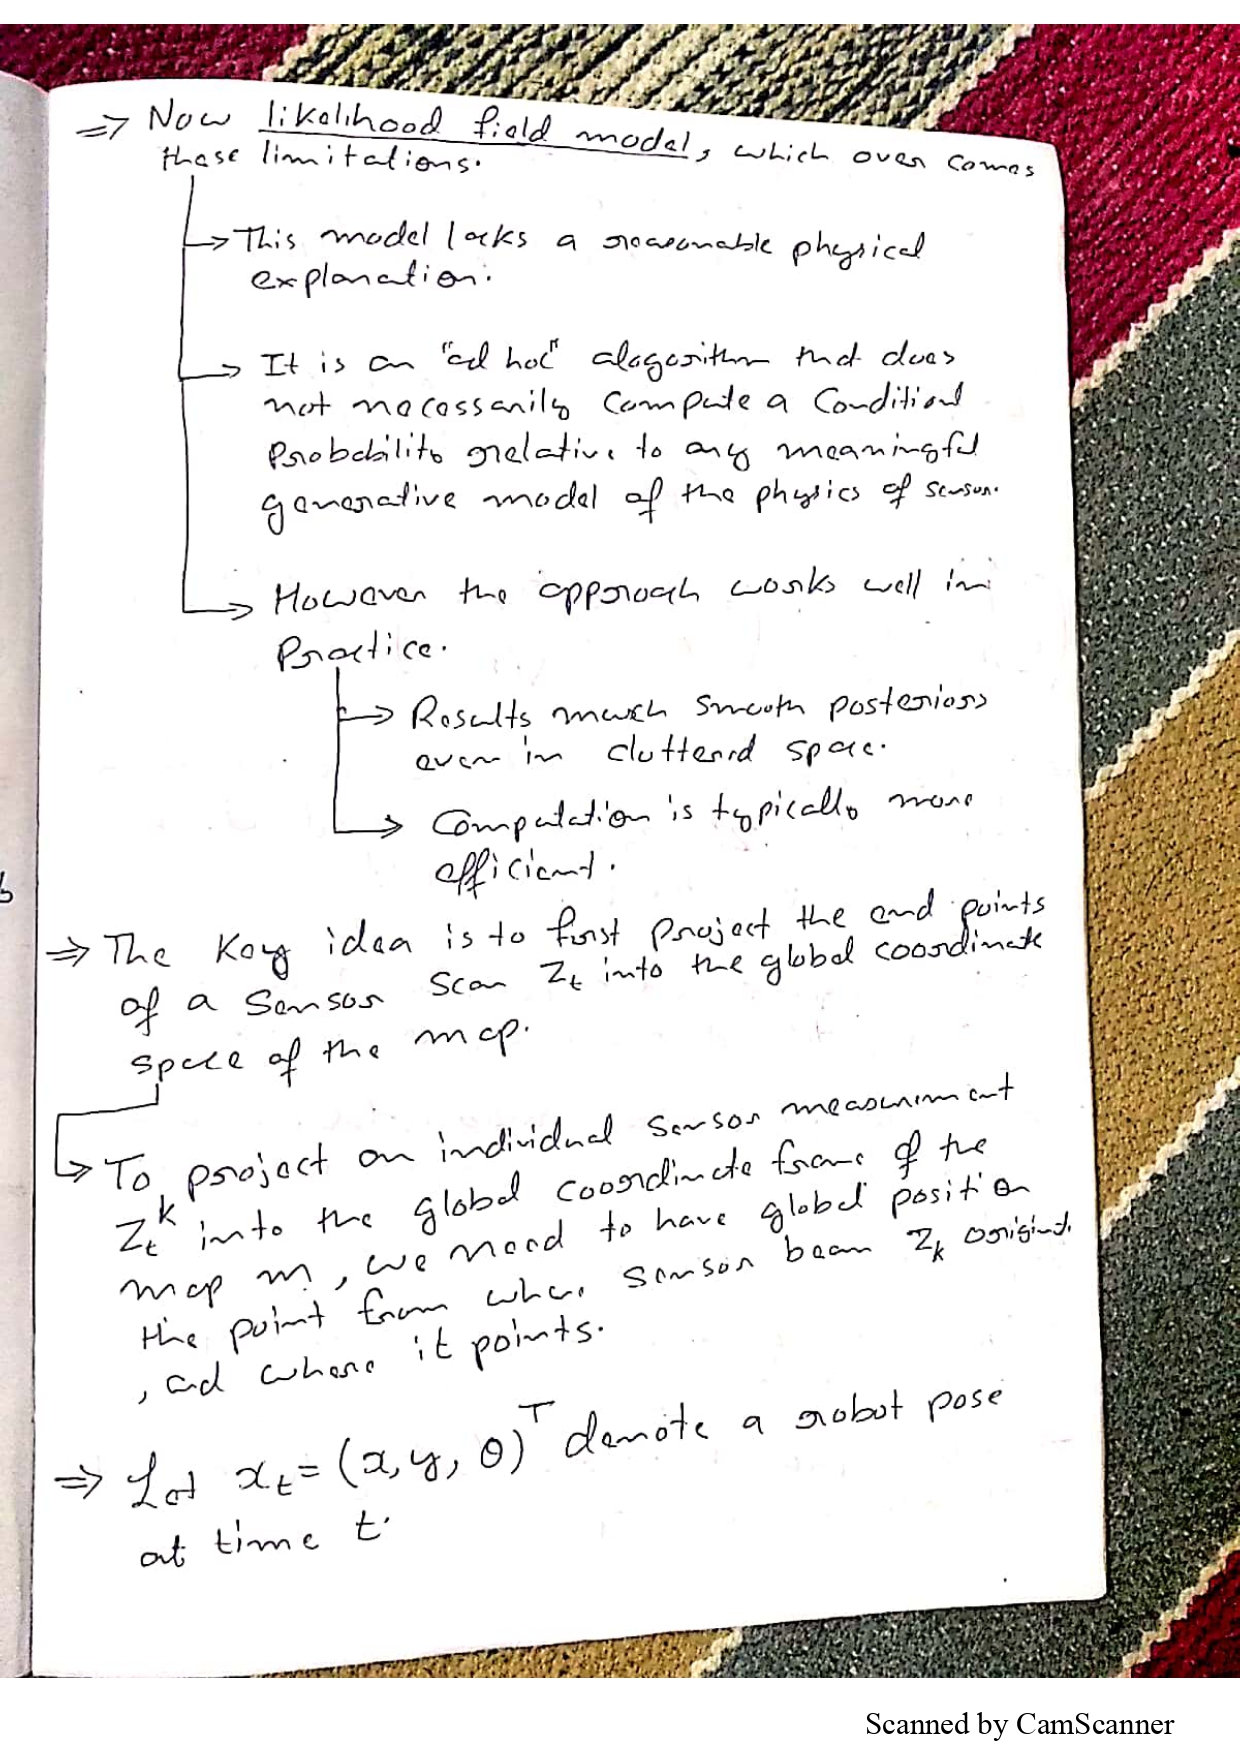 ⇒ Now likelihood field model, which over comes
these limitations.
→ This model lacks a reasonable physical
explanation.
→ It is an "ad hoc" alogorithm that does
not necessarily compute a Conditionl
Probability relative to any meaningful
generative model of the physics of sensor.
→ However the approach works well in
Practice.
→ Results much smooth posteriors
even in cluttered space.
→ Computation is typically more
efficient.
⇒ The Key idea is to first project the end points
of a Sensor Scan Z_t into the global coordinate
space of the map.
→ To project an individual sensor measurement
Z_t^k into the global coordinate frame of the
map m, we need to have global position
the point from where sensor beam Z_k originat.
, and where it points.
⇒ Let x_t = (x, y, θ)^T denote a robot pose
at time t.
Scanned by CamScanner